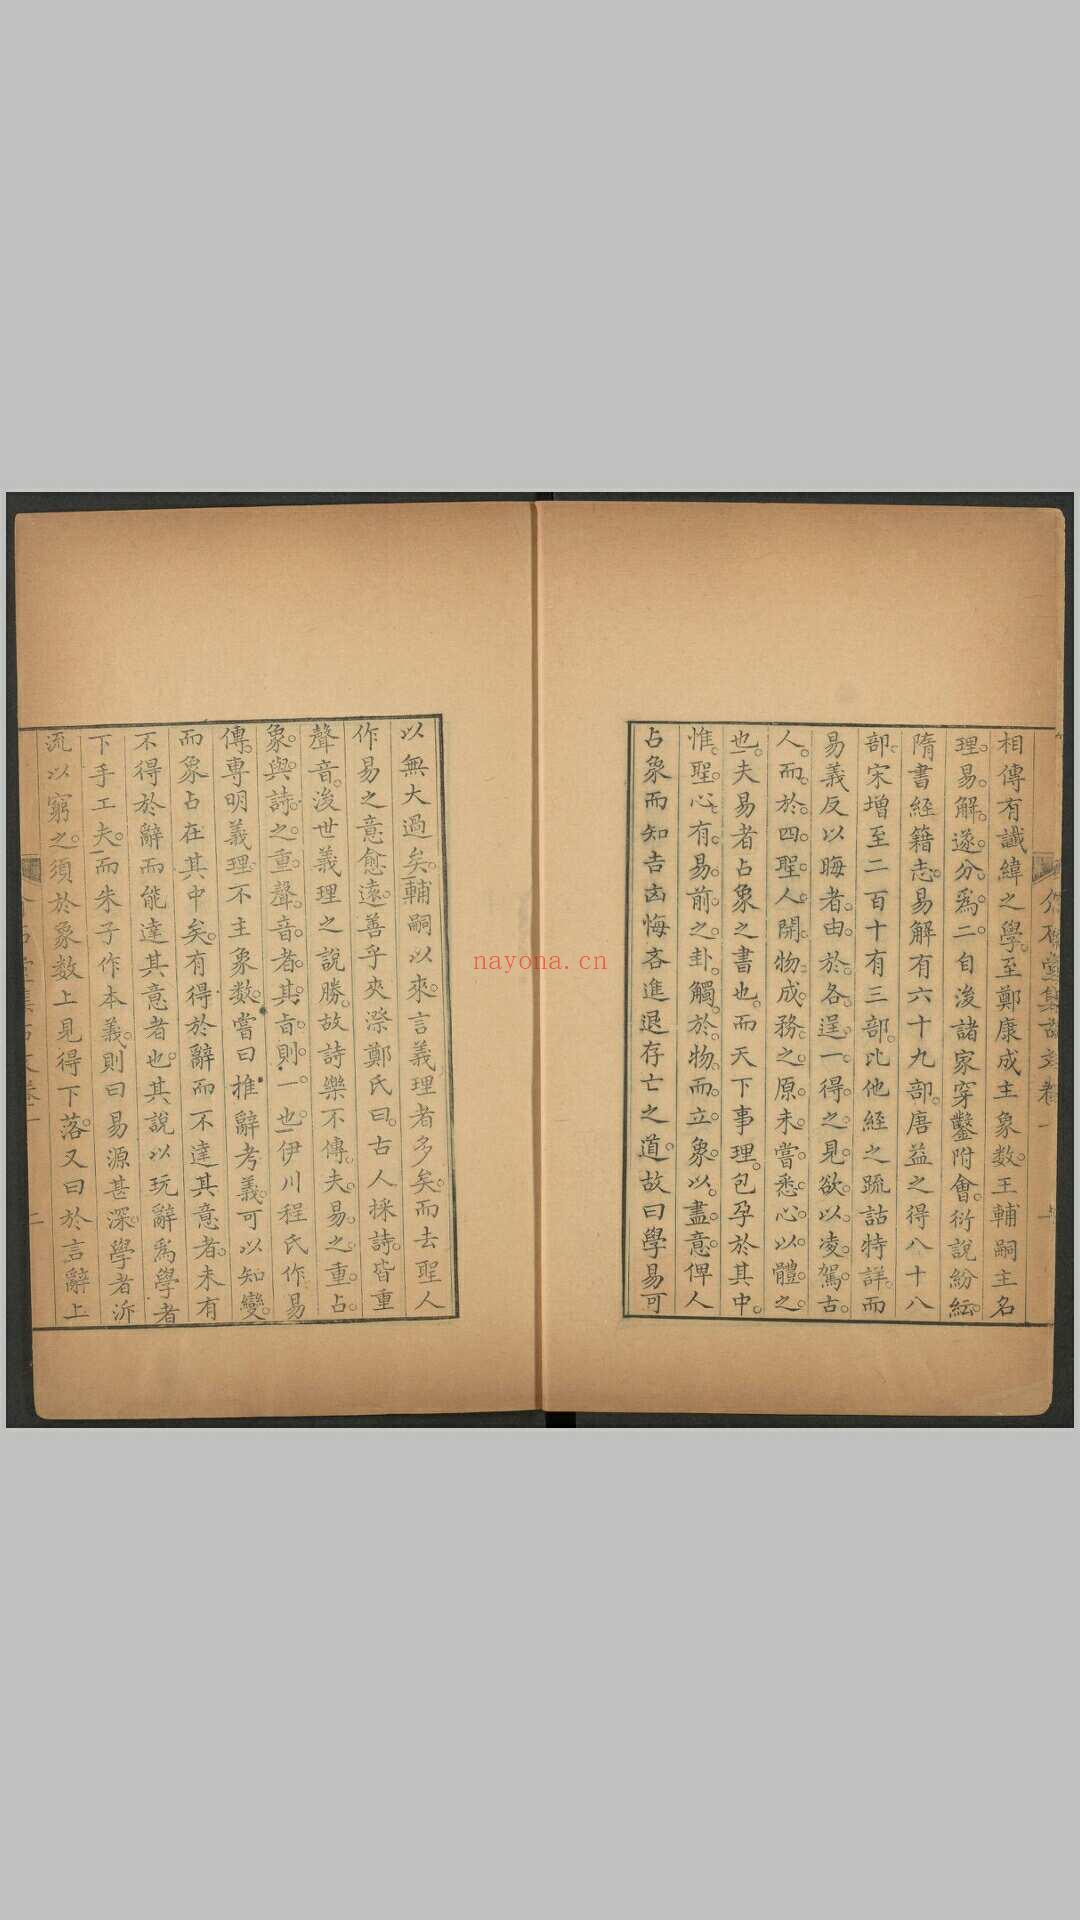 相傳有讖緯之學。至鄭康成主象數。王輔嗣主名
理。易。解。遂。分。爲。二。自後諸家穿鑿附會。衍說紛紜。
隋書經籍志。易解有六十九部。唐益之得八十八
部。宋增至二百十有三部。比他經之疏詁特詳。而
易義反以晦者。由。於。各。逞。一。得。之。見。欲。以。凌。駕。古。
人。而。於。四。聖。人。開。物。成。務。之。原。未。嘗。悉。心。以。體。之。
也。夫易者占象之書也。而天下事理。包孕於其中。
惟。聖。心。有。易。前。之。卦。觸。於。物。而。立。象。以。盡。意。俾人
占象而知吉凶悔吝進退存亡之道。故曰學易可
以無大過矣。輔嗣以來。言義理者多矣。而去聖人
作易之意愈遠。善乎夾漈鄭氏曰。古人採詩。皆重
聲音。後世義理之說勝。故詩樂不傳。夫。易。之。重。占。
象。與。詩。之。重。聲。音。者。其。旨。則。一。也。伊川程氏作易
傳。專明義理。不主象數。嘗曰推辭考義。可以知變。
而象占在其中矣。有得於辭而不達其意者。未有
不得於辭而能達其意者也。其說以玩辭爲學者
下手工夫。而朱子作本義。則曰易源甚深。學者泝
流以窮之。須於象數上見得下落。又曰於言辭上
nayona.cn